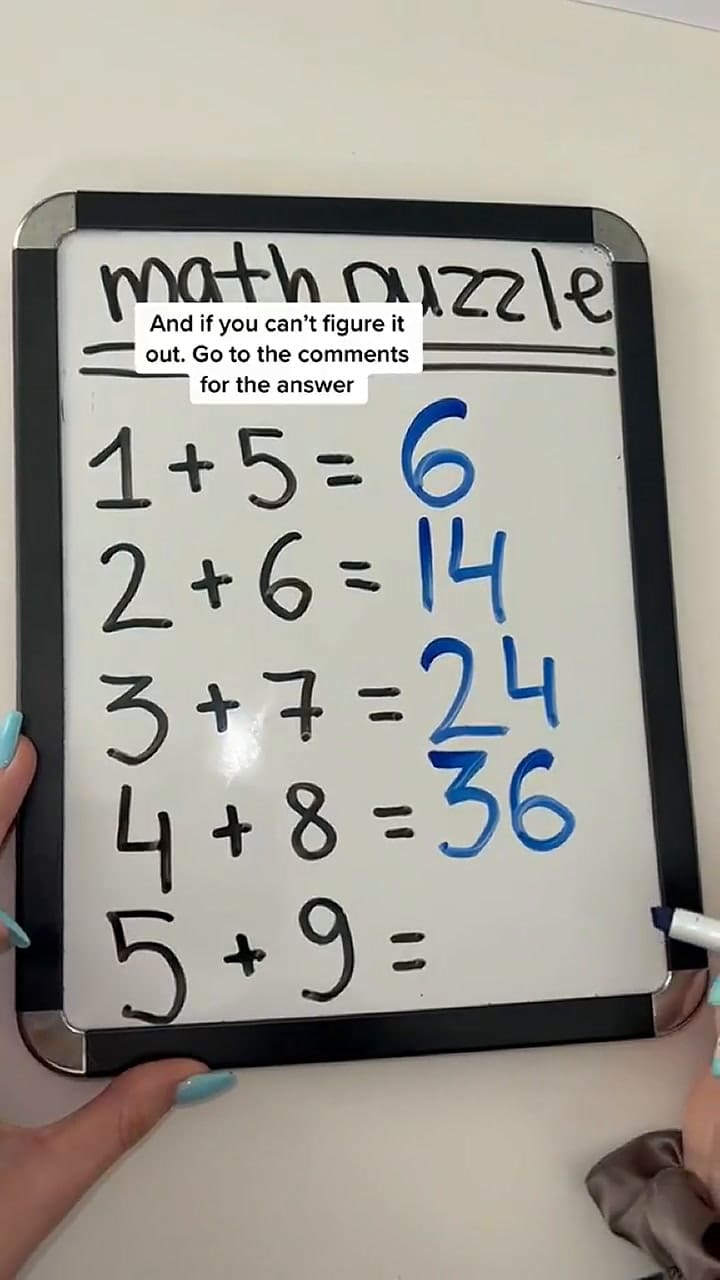 math puzzle
And if you can't figure it
out. Go to the comments
for the answer
1 + 5 = 6
2 + 6 = 14
3 + 7 = 24
4 + 8 = 36
5 + 9 =